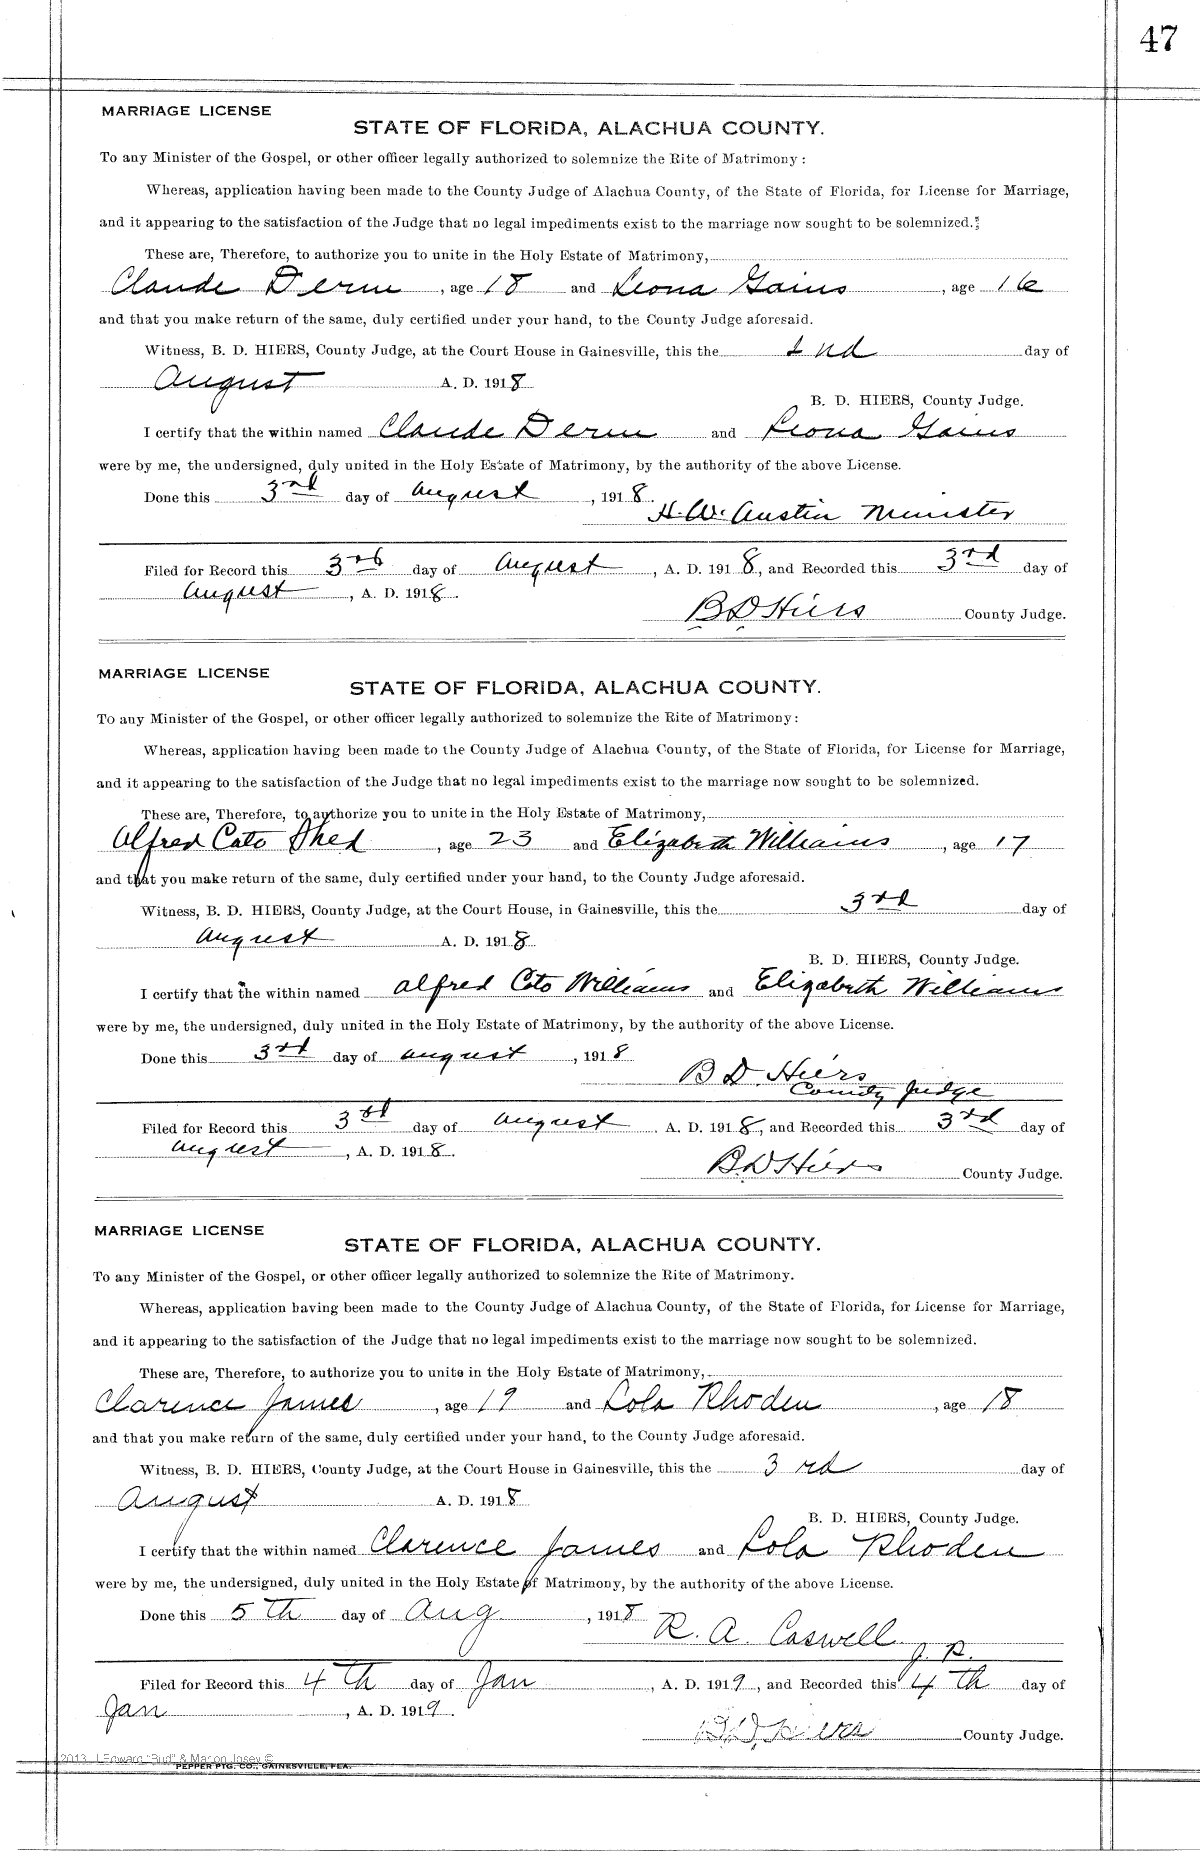 47
MARRIAGE LICENSE
STATE OF FLORIDA, ALACHUA COUNTY.
To any Minister of the Gospel, or other officer legally authorized to solemnize the Rite of Matrimony:
Whereas, application having been made to the County Judge of Alachua County, of the State of Florida, for License for Marriage,
and it appearing to the satisfaction of the Judge that no legal impediments exist to the marriage now sought to be solemnized.
These are, Therefore, to authorize you to unite in the Holy Estate of Matrimony,
Claude , age 18 and Leona Gains , age 16
and that you make return of the same, duly certified under your hand, to the County Judge aforesaid.
Witness, B. D. HIERS, County Judge, at the Court House in Gainesville, this the 2nd day of
August A. D. 1918
B. D. HIERS, County Judge.
I certify that the within named Claude and Leona Gains
were by me, the undersigned, duly united in the Holy Estate of Matrimony, by the authority of the above License.
Done this 3rd day of August , 1918.
H. W. Austin Minister
Filed for Record this 3rd day of August , A. D. 1918, and Recorded this 3rd day of
August , A. D. 1918.
B D Hiers County Judge.
MARRIAGE LICENSE
STATE OF FLORIDA, ALACHUA COUNTY.
To any Minister of the Gospel, or other officer legally authorized to solemnize the Rite of Matrimony:
Whereas, application having been made to the County Judge of Alachua County, of the State of Florida, for License for Marriage,
and it appearing to the satisfaction of the Judge that no legal impediments exist to the marriage now sought to be solemnized.
These are, Therefore, to authorize you to unite in the Holy Estate of Matrimony,
Alfred Cato Shed , age 23 and Elizabeth Williams , age 17
and that you make return of the same, duly certified under your hand, to the County Judge aforesaid.
Witness, B. D. HIERS, County Judge, at the Court House, in Gainesville, this the 3rd day of
August A. D. 1918
B. D. HIERS, County Judge.
I certify that the within named Alfred Cato Williams and Elizabeth Williams
were by me, the undersigned, duly united in the Holy Estate of Matrimony, by the authority of the above License.
Done this 3rd day of August , 1918
B D. Hiers
County Judge
Filed for Record this 3rd day of August . A. D. 1918, and Recorded this 3rd day of
August , A. D. 1918.
B. D Hiers County Judge.
MARRIAGE LICENSE
STATE OF FLORIDA, ALACHUA COUNTY.
To any Minister of the Gospel, or other officer legally authorized to solemnize the Rite of Matrimony.
Whereas, application having been made to the County Judge of Alachua County, of the State of Florida, for License for Marriage,
and it appearing to the satisfaction of the Judge that no legal impediments exist to the marriage now sought to be solemnized.
These are, Therefore, to authorize you to unite in the Holy Estate of Matrimony,
Clarence James , age 19 and Lola Rhoden , age 18
and that you make return of the same, duly certified under your hand, to the County Judge aforesaid.
Witness, B. D. HIERS, County Judge, at the Court House in Gainesville, this the 3rd day of
August A. D. 1918
B. D. HIERS, County Judge.
I certify that the within named Clarence James and Lola Rhoden
were by me, the undersigned, duly united in the Holy Estate of Matrimony, by the authority of the above License.
Done this 5th day of Aug , 1918
R. A. Caswell
J. P.
Filed for Record this 4th day of Jan , A. D. 1919, and Recorded this 4th day of
Jan , A. D. 1919.
B. D. Hiers County Judge.
2013 J Edward "Bud" & Marion Josey ©
PEPPER PTG. CO., GAINESVILLE, FLA.